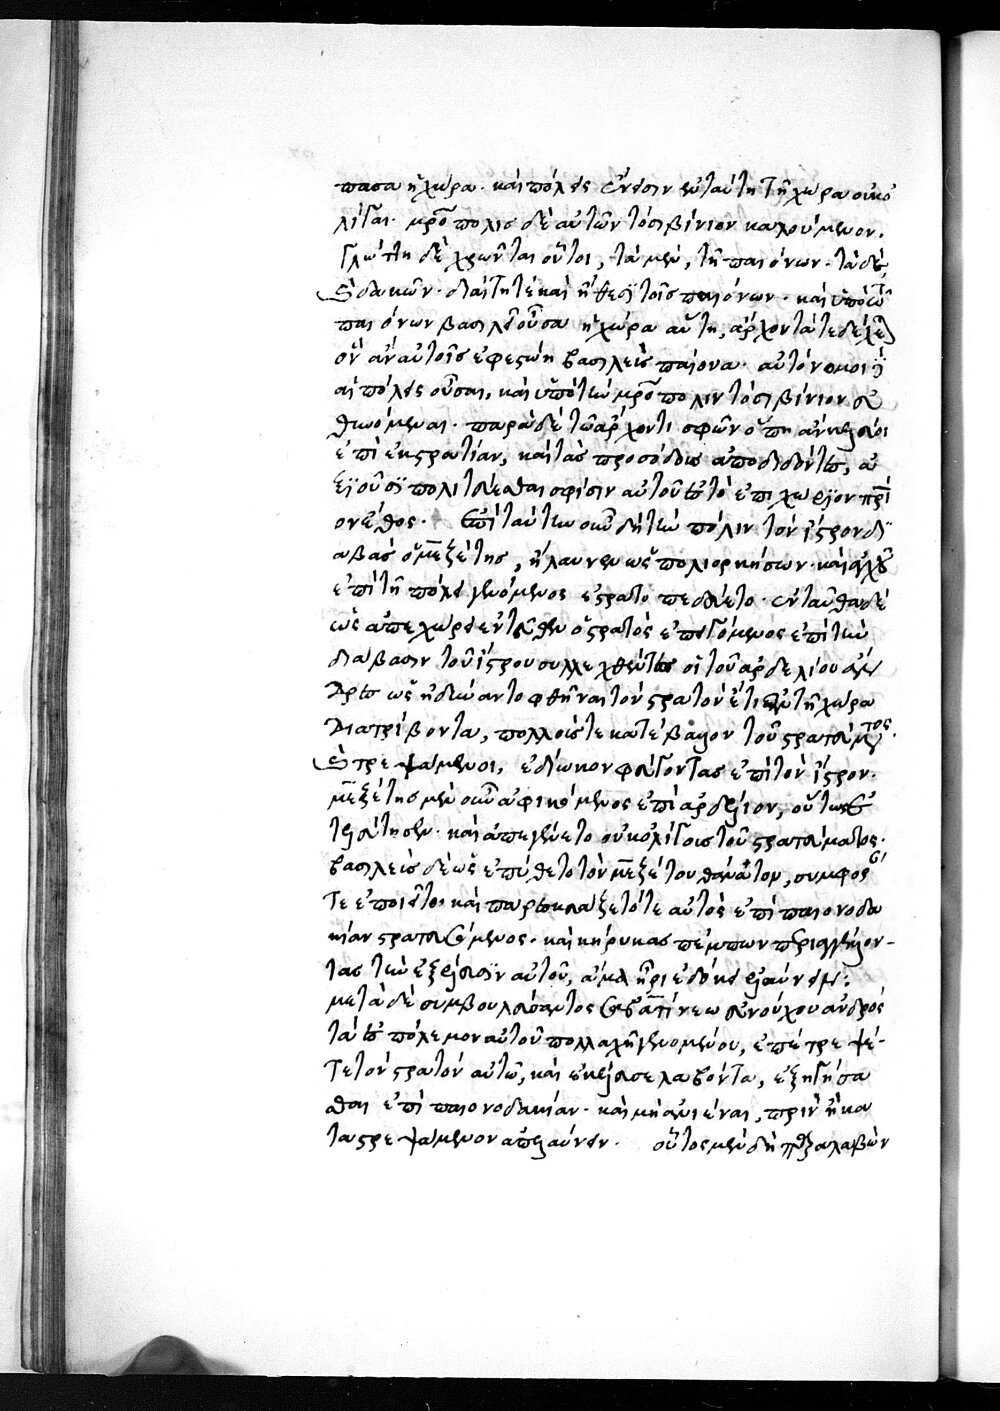 πᾶσα ἡ χώρα. καὶ πόλεις ἔνεισιν ἐν ταύτῃ τῇ χώρα οὐκ ὀ
λίγαι. μητρόπολις δὲ αὐτῶν τὸ σιβίνιον καλούμενον.
Γλώττῃ δὲ χρῶνται οὗτοι, τὰ μὲν, τῇ παιόνων. τὰ δὲ,
τῇ δακῶν. διαίτῃ τὲ καὶ ἤθεσι τοῖς παιόνων. καὶ ὑπὸ τῶν
παιόνων βασιλεῖ οὖσα ἡ χώρα αὕτη, ἄρχοντά τε δέχεται
ὃν ἂν αὐτοῖς ἐφεστώη βασιλεῖς παίονα. αὐτόνομοι
αἱ πόλεις οὖσαι, καὶ ὑπὸ τὴν μητρόπολιν τὸ σιβίνιον εὐ
θυνόμεναι. παρὰ δὲ τῷ ἄρχοντι σφῶν ὅπῃ ἂν κελεύοι
ἐπὶ ἐκστρατίαν, καὶ τὰς προσόδους ἀποδιδόντες, ἀ
ξιοῦσι πολιτεύεσθαι σφίσιν αὐτοὺς τὸ ἐπιχώριον πρὸς
ον ἔθος. ἐπὶ ταύτην οὖν δὴ τὴν πόλιν τὸν ἴστρον δι
αβὰς ὁ μεζέτης, ἤλαυνεν ὡς πολιορκήσων. καὶ ἀγχοῦ
ἐπὶ τῇ πόλει γενόμενος ἐστρατοπεδεύετο. ἐνταῦθα δὲ
ὡς ἀπεχώρει ἐντεῦθεν ὁ στρατὸς ἐπειγόμενος ἐπὶ τὴν
διάβασιν τοῦ ἴστρου συλλεχθέντες οἱ τοῦ ἀρδελίου ἄν
δρες ὡς ἠδύναντο ὀφθῆναι τὸν στρατὸν ἔτι ἐν τῇ χώρα
διατρίβοντα, πολλούς τε κατέβαλον τοῦ στρατεύματος.
τρεψάμενοι, ἐδίωκον φεύγοντας ἐπὶ τὸν ἴστρον.
μεζέτης μὲν οὖν ἀφικόμενος ἐπὶ ἀρδέλιον, οὕτως ἐ
τελεύτησεν. καὶ ἀπεγένετο οὐκ ὀλίγοις τοῦ στρατεύματος.
βασιλεὺς δὲ ὡς ἐπύθετο τὸν μεζέτου θάνατον, συμφοράν
τε ἐποιεῖτο. καὶ παρεσκευάζετό τε αὐτὸς ἐπὶ παιονοδα
κίαν στρατευόμενος. καὶ κήρυκας πέμπων περιαγγέλον-
τας τὴν ἐξέλασιν αὐτοῦ, ἅμα ἦρι ἐδόκει ἐλαύνειν.
μετὰ δὲ συμβουλεύσαντος σαβατίνεω εὐνούχου ἀνδρὸς
τὰ ἐς πόλεμον αὐτοῦ πολλαχῇ γενομένου, ἐπέτρεψέ-
τε τὸν στρατὸν αὐτῷ, καὶ ἐκέλευσε λαβόντα, ἐξηγήσα
σθαι ἐπὶ παιονοδακίαν. καὶ μὴ ἀνιέναι, πρὶν ἢ κα
ταστρεψάμενον ἀπελαύνειν. οὗτος μὲν δὴ παραλαβὼν